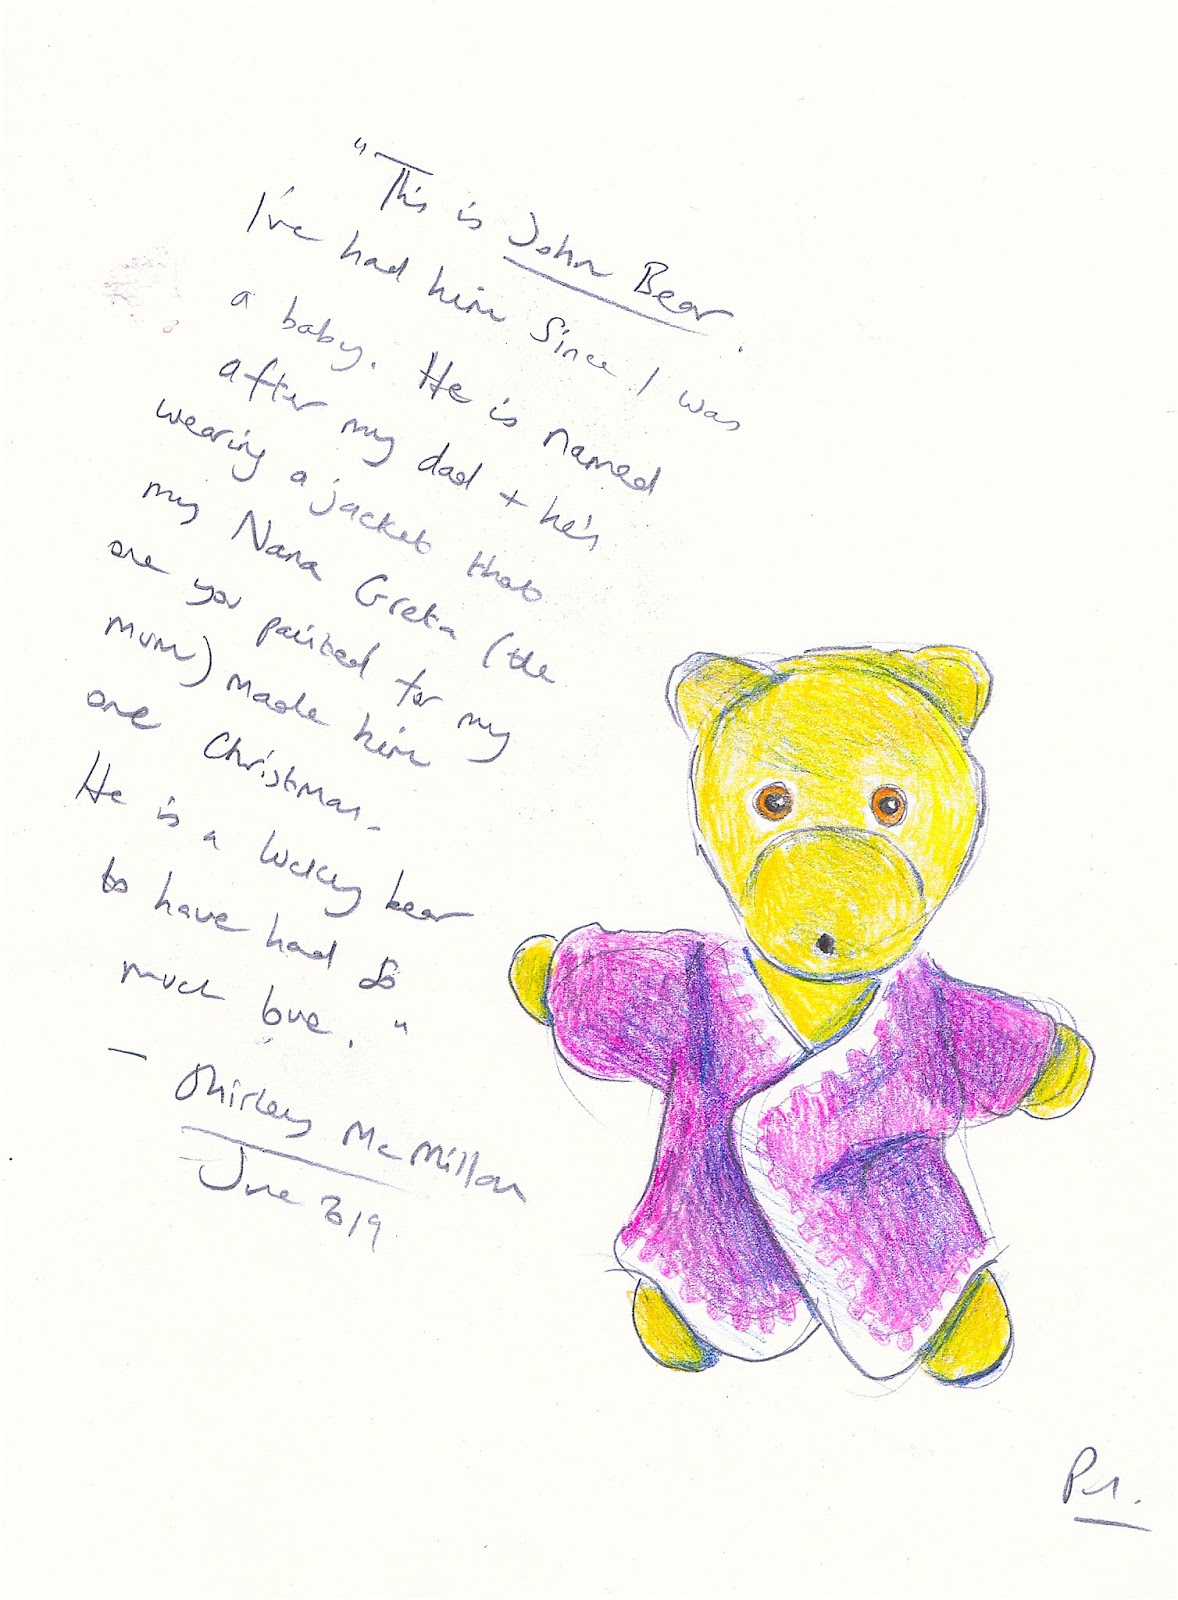 "This is John Bear.
I've had him since I was
a baby. He is named
after my dad + he's
wearing a jacket that
my Nana Greta (the
one you painted for my
mum) made him
one Christmas.
He is a lucky bear
to have had so
much love."
- Shirley McMillan
June 2019